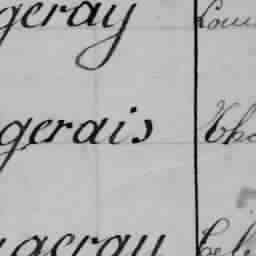 geray Lou
gerais Tho
geray Leb